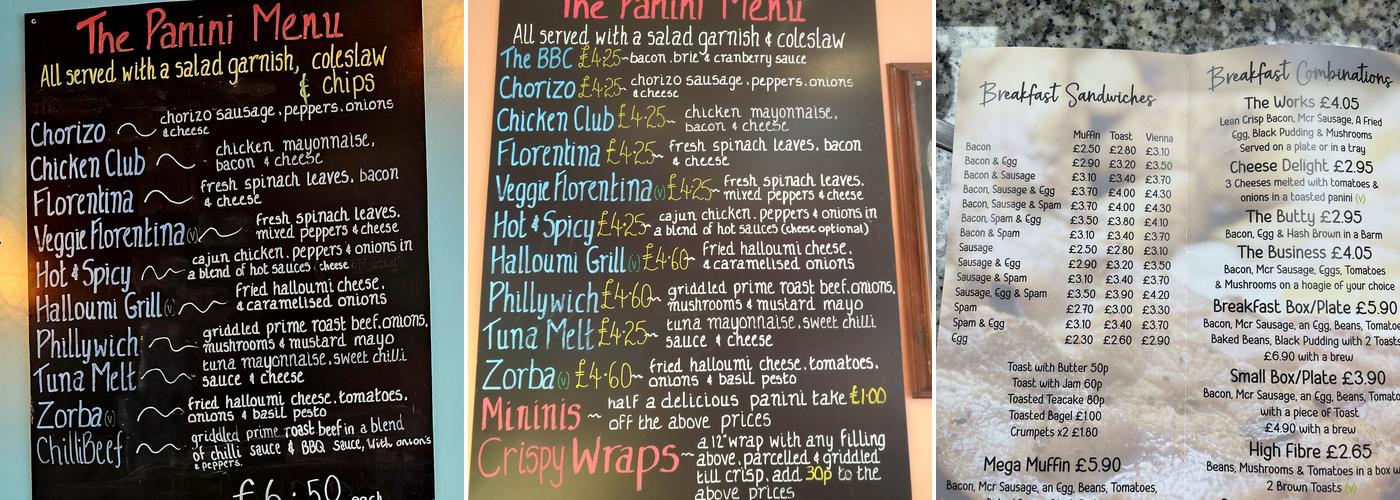 The Panini Menu
All served with a salad garnish, coleslaw
& chips
Chorizo ~ chorizo sausage.peppers.onions
& cheese
Chicken Club ~ chicken mayonnaise,
bacon & cheese
Florentina ~ fresh spinach leaves, bacon
& cheese
Veggie Florentina (v) ~ fresh spinach leaves,
mixed peppers & cheese
Hot & Spicy ~ cajun chicken. peppers & onions in
a blend of hot sauces (cheese optional)
Halloumi Grill (v) ~ Fried halloumi cheese.
& caramelised onions
Phillywich ~ griddled prime roast beef.onions,
mushrooms & mustard mayo
Tuna Melt ~ tuna mayonnaise.sweet chilli
sauce & cheese
Zorba (v) ~ fried halloumi cheese.tomatoes.
onions & basil pesto
ChilliBeef ~ griddled prime roast beef in a blend
of chilli sauce & BBQ sauce, with onions
& peppers.
£6.50 each
The Panini Menu
All served with a salad garnish & coleslaw
The BBC £4.25~ bacon.brie & cranberry sauce
Chorizo £4.25~ chorizo sausage.peppers.onions
& cheese
Chicken Club £4.25~ chicken mayonnaise,
bacon & cheese
Florentina £4.25~ fresh spinach leaves. bacon
& cheese
Veggie Florentina (v) £4.25~ fresh spinach leaves.
mixed peppers & cheese
Hot & Spicy £4.25~ cajun chicken. peppers & onions in
a blend of hot sauces (cheese optional)
Halloumi Grill (v) £4.60~ Fried halloumi cheese.
& caramelised onions
Phillywich £4.60~ griddled prime roast beef.onions,
mushrooms & mustard mayo
Tuna Melt £4.25~ tuna mayonnaise.sweet chilli
sauce & cheese
Zorba (v) £4.60~ fried halloumi cheese.tomatoes.
onions & basil pesto
Mininis ~ half a delicious panini take £1.00
off the above prices
Crispy Wraps ~ a 12" wrap with any filling
above.parcelled & griddled
till crisp. add 30p to the
above prices
Breakfast Sandwiches
Muffin Toast Vienna
Bacon £2.50 £2.80 £3.10
Bacon & Egg £2.90 £3.20 £3.50
Bacon & Sausage £3.10 £3.40 £3.70
Bacon, Sausage & Egg £3.70 £4.00 £4.30
Bacon, Sausage & Spam £3.70 £4.00 £4.30
Bacon, Spam & Egg £3.50 £3.80 £4.10
Bacon & Spam £3.10 £3.40 £3.70
Sausage £2.50 £2.80 £3.10
Sausage & Egg £2.90 £3.20 £3.50
Sausage & Spam £3.10 £3.40 £3.70
Sausage, Egg & Spam £3.50 £3.90 £4.20
Spam £2.70 £3.00 £3.30
Spam & Egg £3.10 £3.40 £3.70
Egg £2.30 £2.60 £2.90
Toast with Butter 50p
Toast with Jam 60p
Toasted Teacake 80p
Toasted Bagel £1.00
Crumpets x2 £1.80
Mega Muffin £5.90
Bacon, Mcr Sausage, an Egg, Beans, Tomatoes,
Breakfast Combinations
The Works £4.05
Lean Crisp Bacon, Mcr Sausage, A Fried
Egg, Black Pudding & Mushrooms
Served on a plate or in a tray
Cheese Delight £2.95
3 Cheeses melted with tomatoes &
onions in a toasted panini (v)
The Butty £2.95
Bacon, Egg & Hash Brown in a Barm
The Business £4.05
Bacon, Mcr Sausage, Eggs, Tomatoes
& Mushrooms on a hoagie of your choice
Breakfast Box/Plate £5.90
Bacon, Mcr Sausage, an Egg, Beans, Tomato
Baked Beans, Black Pudding with 2 Toasts
£6.90 with a brew
Small Box/Plate £3.90
Bacon, Mcr Sausage, an Egg, Beans, Tomato
with a piece of Toast
£4.90 with a brew
High Fibre £2.65
Beans, Mushrooms & Tomatoes in a box w
2 Brown Toasts (v)